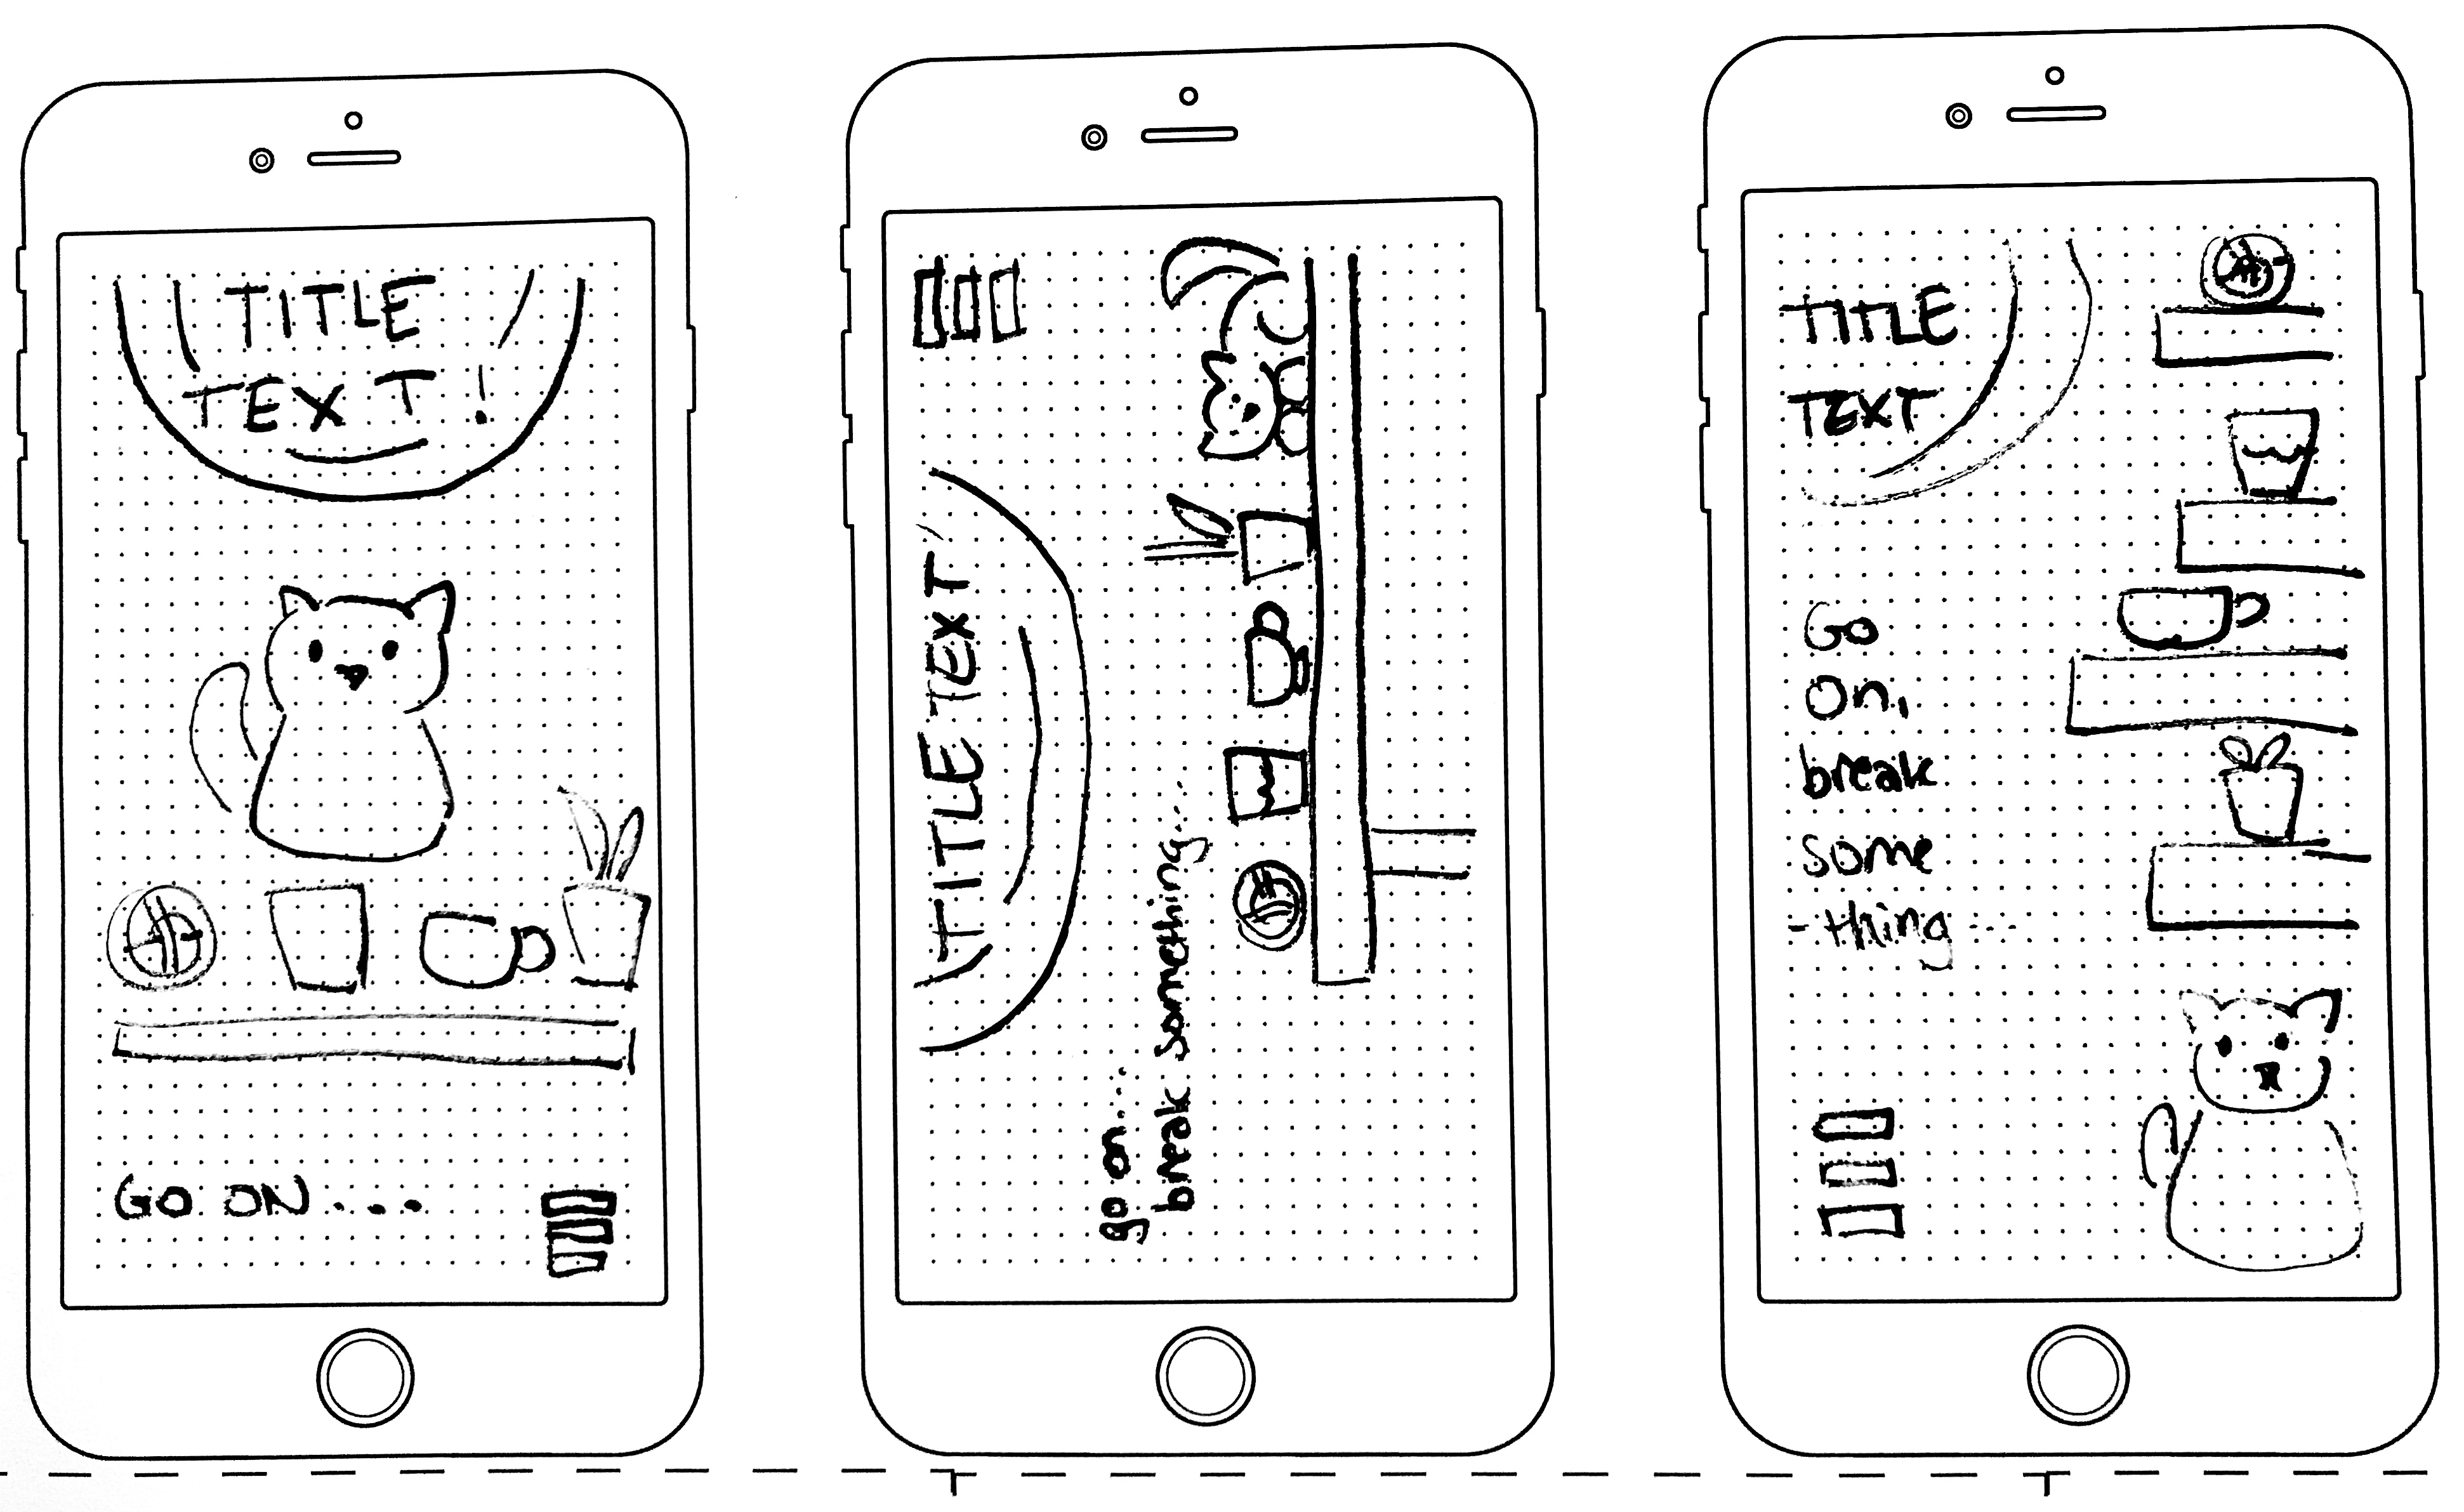 TITLE
TEXT!
GO ON....
TITLE TEXT
go on...
break something...
TITLE
TEXT
Go
On,
break
some
-thing...